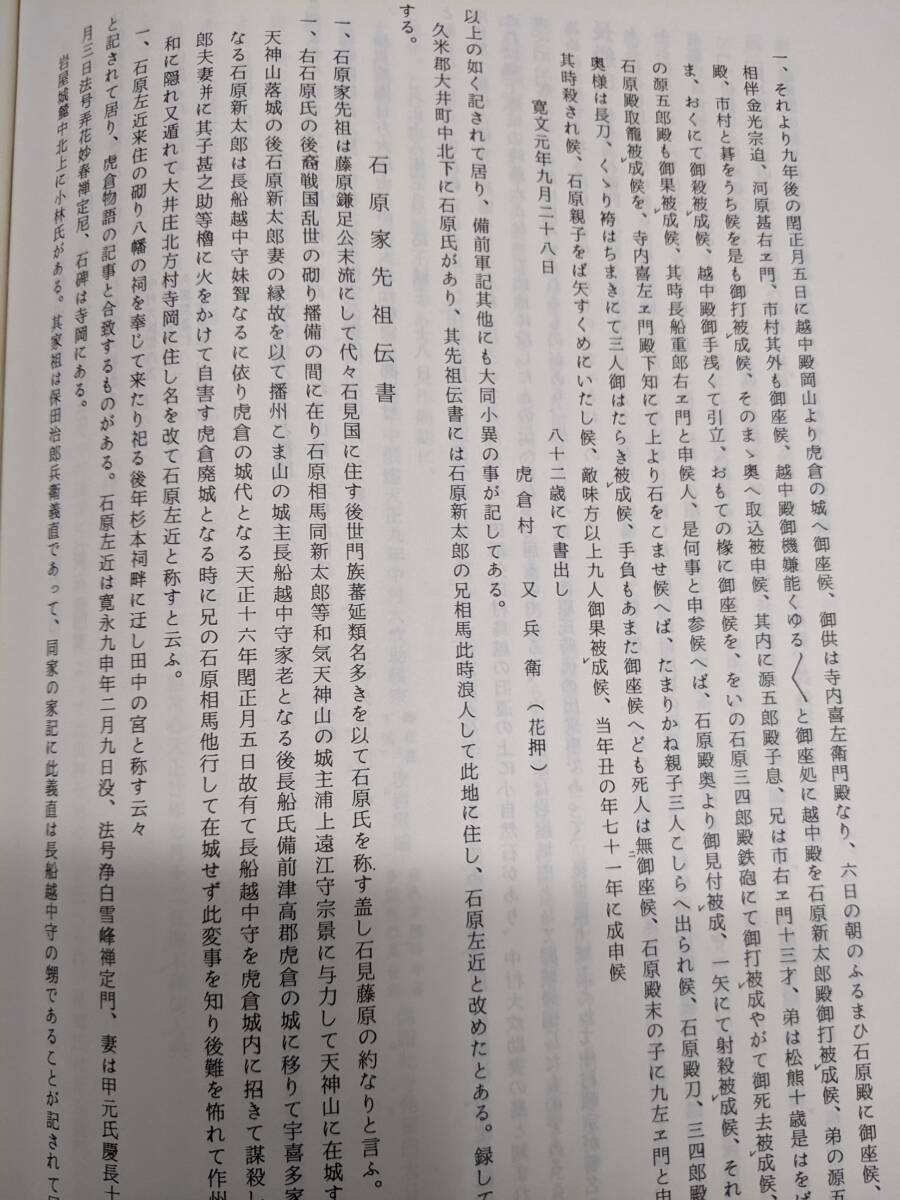 一、それより九年後の閏正月五日に越中殿岡山より虎倉の城へ御座候、御供は寺内喜左衛門殿なり、六日の朝のふるまひ石原殿に御座候、
相伴金光宗迫、河原甚右ヱ門、市村其外も御座候、越中殿御機嫌能くゆる〱と御座処に越中殿を石原新太郎殿御打被成候、弟の源五
殿、市村と碁をうち候を是も御打被成候、そのまゝ奥へ取込被申候、其内に源五郎殿子息、兄は市右ヱ門十三才、弟は松熊十歳是はをば
ま、おくにて御殺被成候、越中殿御手浅くて引立、おもての椽に御座候を、をいの石原三四郎殿鉄砲にて御打被成やがて御死去被成候、
の源五郎殿も御果被成候、其時長船重郎右ヱ門と申候人、是何事と申参候へば、石原殿奥より御見付被成、一矢にて射殺被成候、それ
石原殿取籠被成候を、寺内喜左ヱ門殿下知にて上より石をこませ候へば、たまりかね親子三人こしらへ出られ候、石原殿刀、三四郎殿
奥様は長刀、くゝり袴はちまきにて三人御はたらき被成候、手負もあまた御座候へども死人は無御座候、石原殿末の子に九左ヱ門と申
其時殺され候、石原親子をば矢すくめにいたし候、敵味方以上九人御果被成候、当年丑の年七十一年に成申候
寛文元年九月二十八日
八十二歳にて書出し
虎倉村 又兵衛(花押)
以上の如く記されて居り、備前軍記其他にも大同小異の事が記してある。
久米郡大井町中北下に石原氏があり、其先祖伝書には石原新太郎の兄相馬此時浪人して此地に住し、石原左近と改めたとある。録して
する。
石原家先祖伝書
一、石原家先祖は藤原鎌足公末流にして代々石見国に住す後世門族蕃延類名多きを以て石原氏を称す盖し石見藤原の約なりと言ふ。
一、右石原氏の後裔戦国乱世の砌り播備の間に在り石原相馬同新太郎等和気天神山の城主浦上遠江守宗景に与力して天神山に在城す
天神山落城の後石原新太郎妻の縁故を以て播州こま山の城主長船越中守家老となる後長船氏備前津高郡虎倉の城に移りて宇喜多家
なる石原新太郎は長船越中守妹聟なるに依り虎倉の城代となる天正十六年閏正月五日故有て長船越中守を虎倉城内に招きて謀殺し
郎夫妻并に其子甚之助等櫓に火をかけて自害す虎倉廃城となる時に兄の石原相馬他行して在城せず此変事を知り後難を怖れて作州
和に隠れ又遁れて大井庄北方村寺岡に住し名を改て石原左近と称すと云ふ。
一、石原左近来住の砌り八幡の祠を奉じて来たり祀る後年杉本祠畔に迂し田中の宮と称す云々
と記されて居り、虎倉物語の記事と合致するものがある。石原左近は寛永九申年二月九日没、法号浄白雪峰禅定門、妻は甲元氏慶長十
月三日法号弄花妙春禅定尼、石碑は寺岡にある。
岩屋城麓中北上に小林氏がある。其家祖は保田治郎兵衛義直であって、同家の家記に此義直は長船越中守の甥であることが記されて